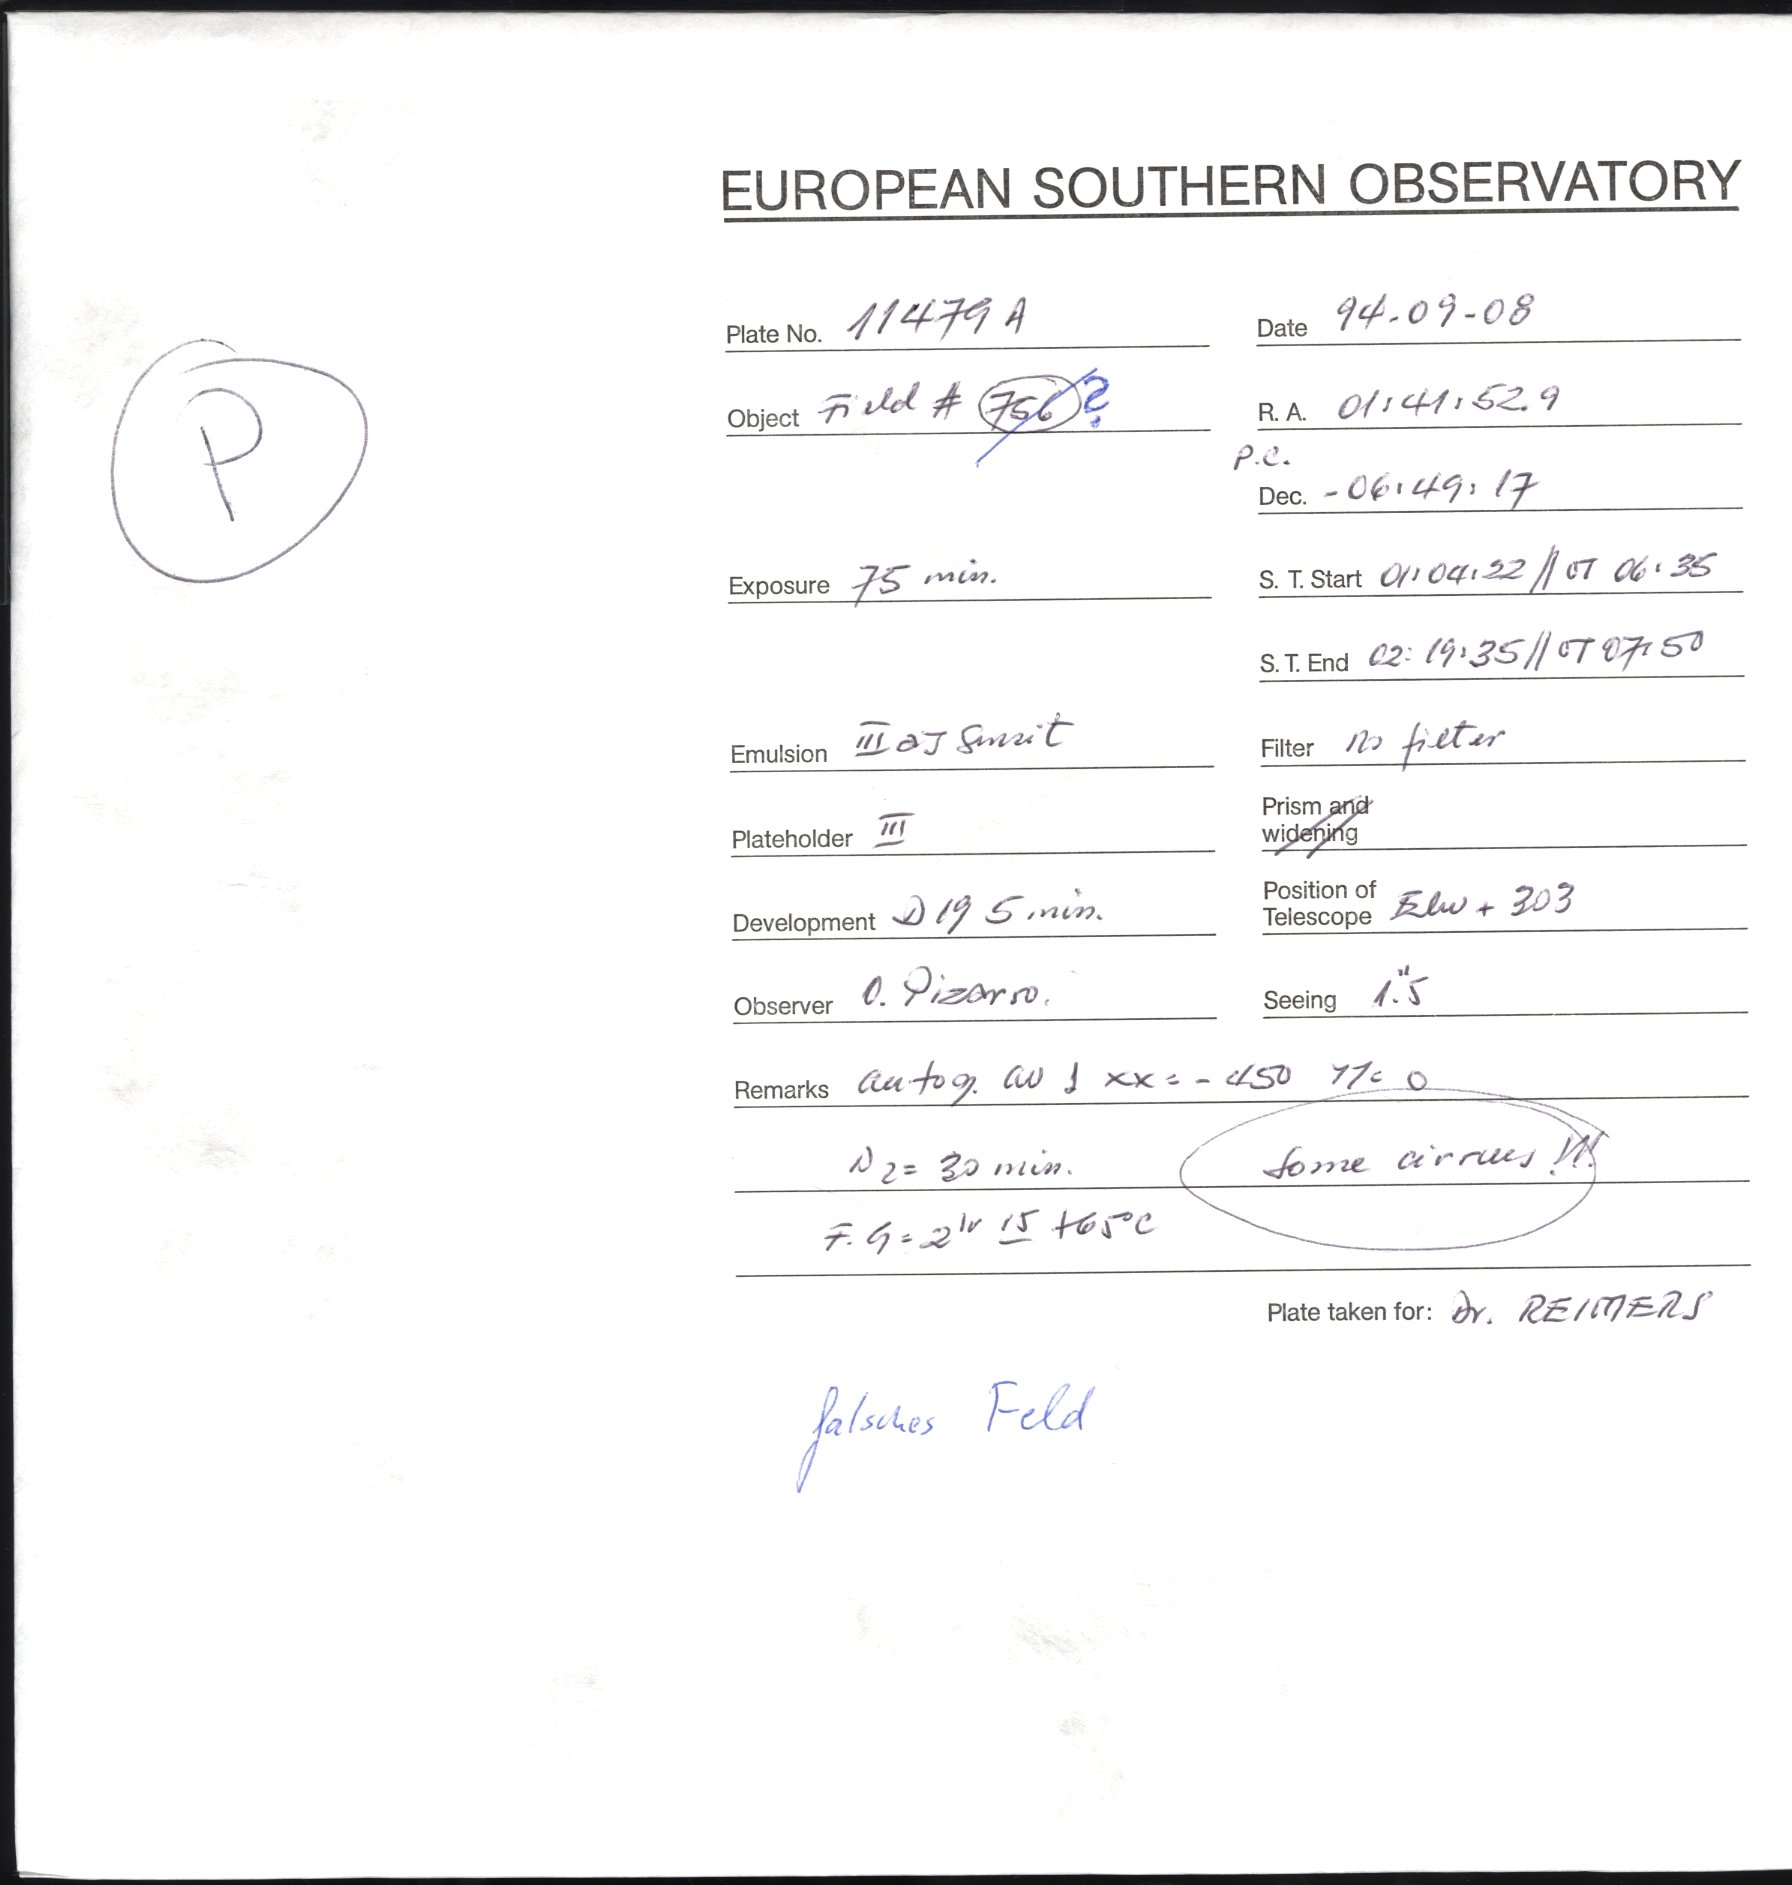 EUROPEAN SOUTHERN OBSERVATORY
Plate No. 11479 A
Date 94-09-08
P
Object Field # 756 ?
R. A. 01:41:52.9
P.C.
Dec. -06:49:17
Exposure 75 min.
S. T. Start 01:04:22 // UT 06:35
S. T. End 02:19:35 // UT 07:50
Emulsion III aJ
Filter no filter
Plateholder III
Prism and
widening
Development D19 5 min.
Position of
Telescope + 303
Observer O. Pizarro.
Seeing 1."5
Remarks autog. xx = -450 YY= 0
N2= 30 min. Some cirrus !!!
F. G = 2hr 15 +65°C
Plate taken for: Dr. REIMERS
falsches Feld